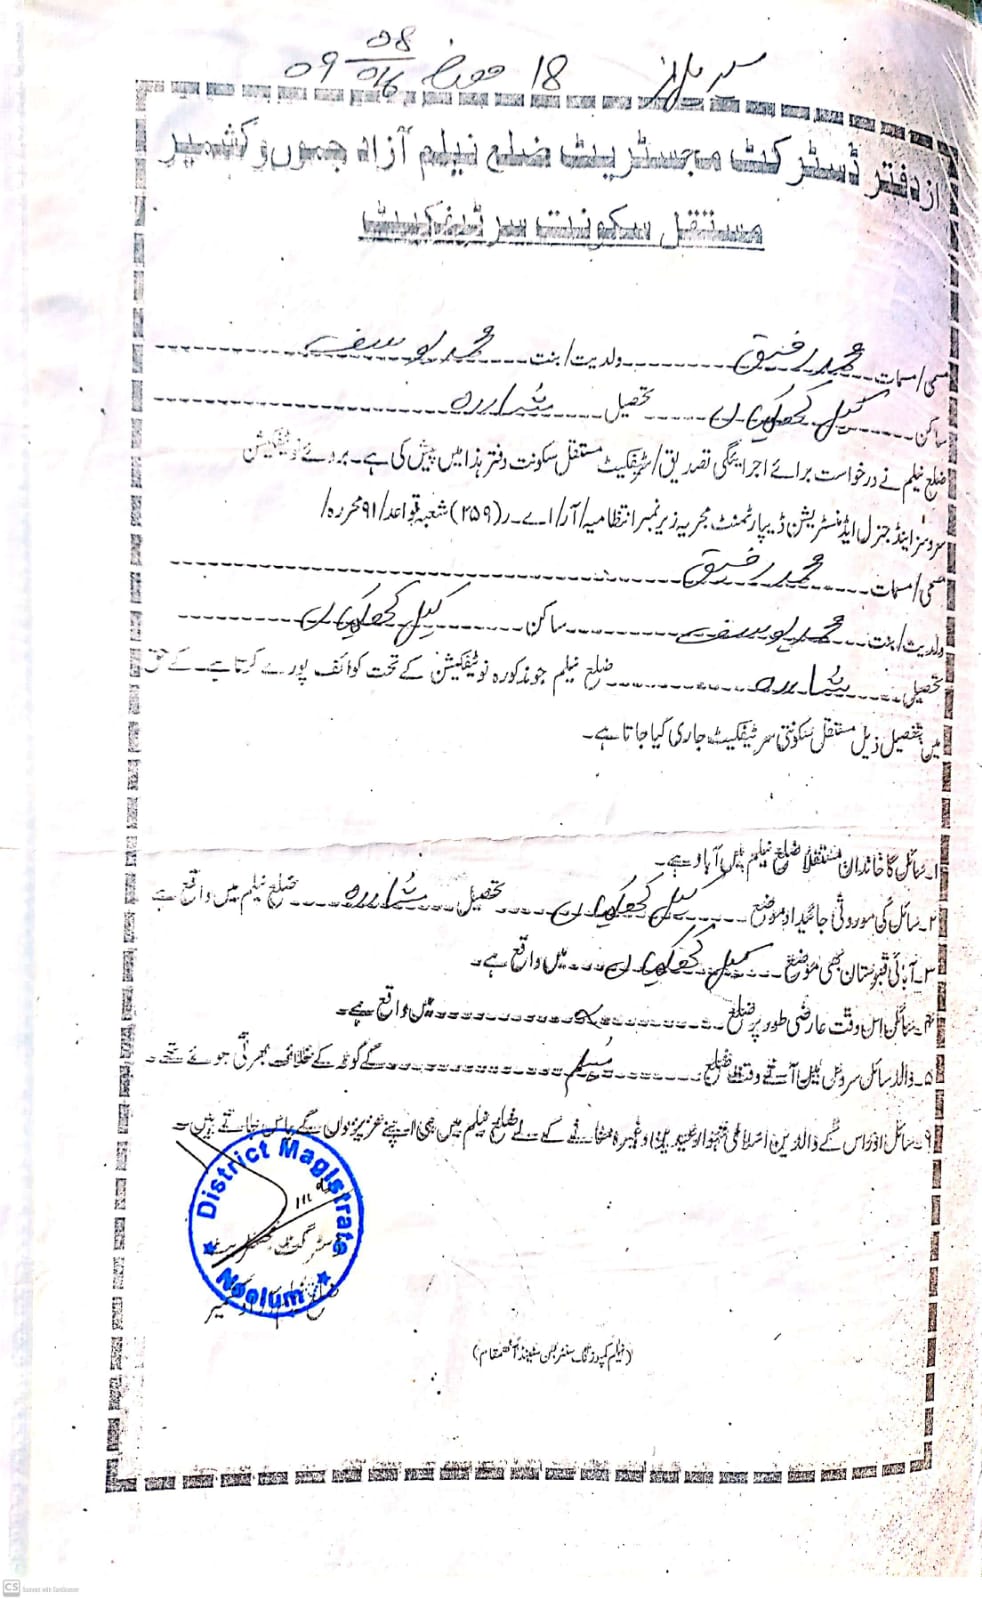 سیریل نمبر 18 مورخہ 08/016 09
از دفتر ڈسٹرکٹ مجسٹریٹ ضلع نیلم آزاد جموں و کشمیر
مستقل سکونیت سرٹیفکیٹ
مسمی/مسمات محمد رفیق ولدیت/بنت محمد یوسف
ساکن کیل تحصیل شاردہ
ضلع نیلم نے درخواست برائے اجرائیگی تصدیق/سرٹیفکیٹ مستقل سکونت دفتر ہذا میں پیش کی ہے۔ بروئے نوٹیفکیشن
سروسز اینڈ جنرل ایڈمنسٹریشن ڈیپارٹمنٹ مجریہ زیر نمبر انتظامیہ/آر/اے۔ر(۲۵۹) شعبہ قواعد/۹۱ محررہ/
مسمی/مسمات محمد رفیق
ولدیت/بنت محمد یوسف ساکن کیل
تحصیل شاردہ ضلع نیلم جو مذکورہ نوٹیفکیشن کے تحت کوائف پورے کرتا ہے۔ کے حق
میں بتفصیل ذیل مستقل سکونتی سرٹیفکیٹ جاری کیا جاتا ہے۔
۱۔ سائل کا خاندان مستقلاً ضلع نیلم میں آباد ہے۔
۲۔ سائل کی موروثی جائیداد موضع کیل تحصیل شاردہ ضلع نیلم میں واقع ہے
۳۔ آبائی قبرستان بھی موضع کیل میں واقع ہے۔
۴۔ سائل اس وقت عارضی طور پر ضلع میں واقع ہے۔
۵۔ والد سائل سروس میں آتے وقت ضلع نیلم کے کوٹہ کے خلاف بھرتی ہوئے تھے۔
۶۔ سائل اور اس کے والدین اسلامی تہوار عیدین وغیرہ منانے کے لئے ضلع نیلم میں ہی اپنے عزیزوں کے پاس جاتے ہیں۔
District Magistrate
Neelum
ڈسٹرکٹ مجسٹریٹ
ضلع نیلم آزاد کشمیر
(نیلم کمپوزنگ سنٹر بس سٹینڈ آٹھمقام)
CS Scanned with CamScanner